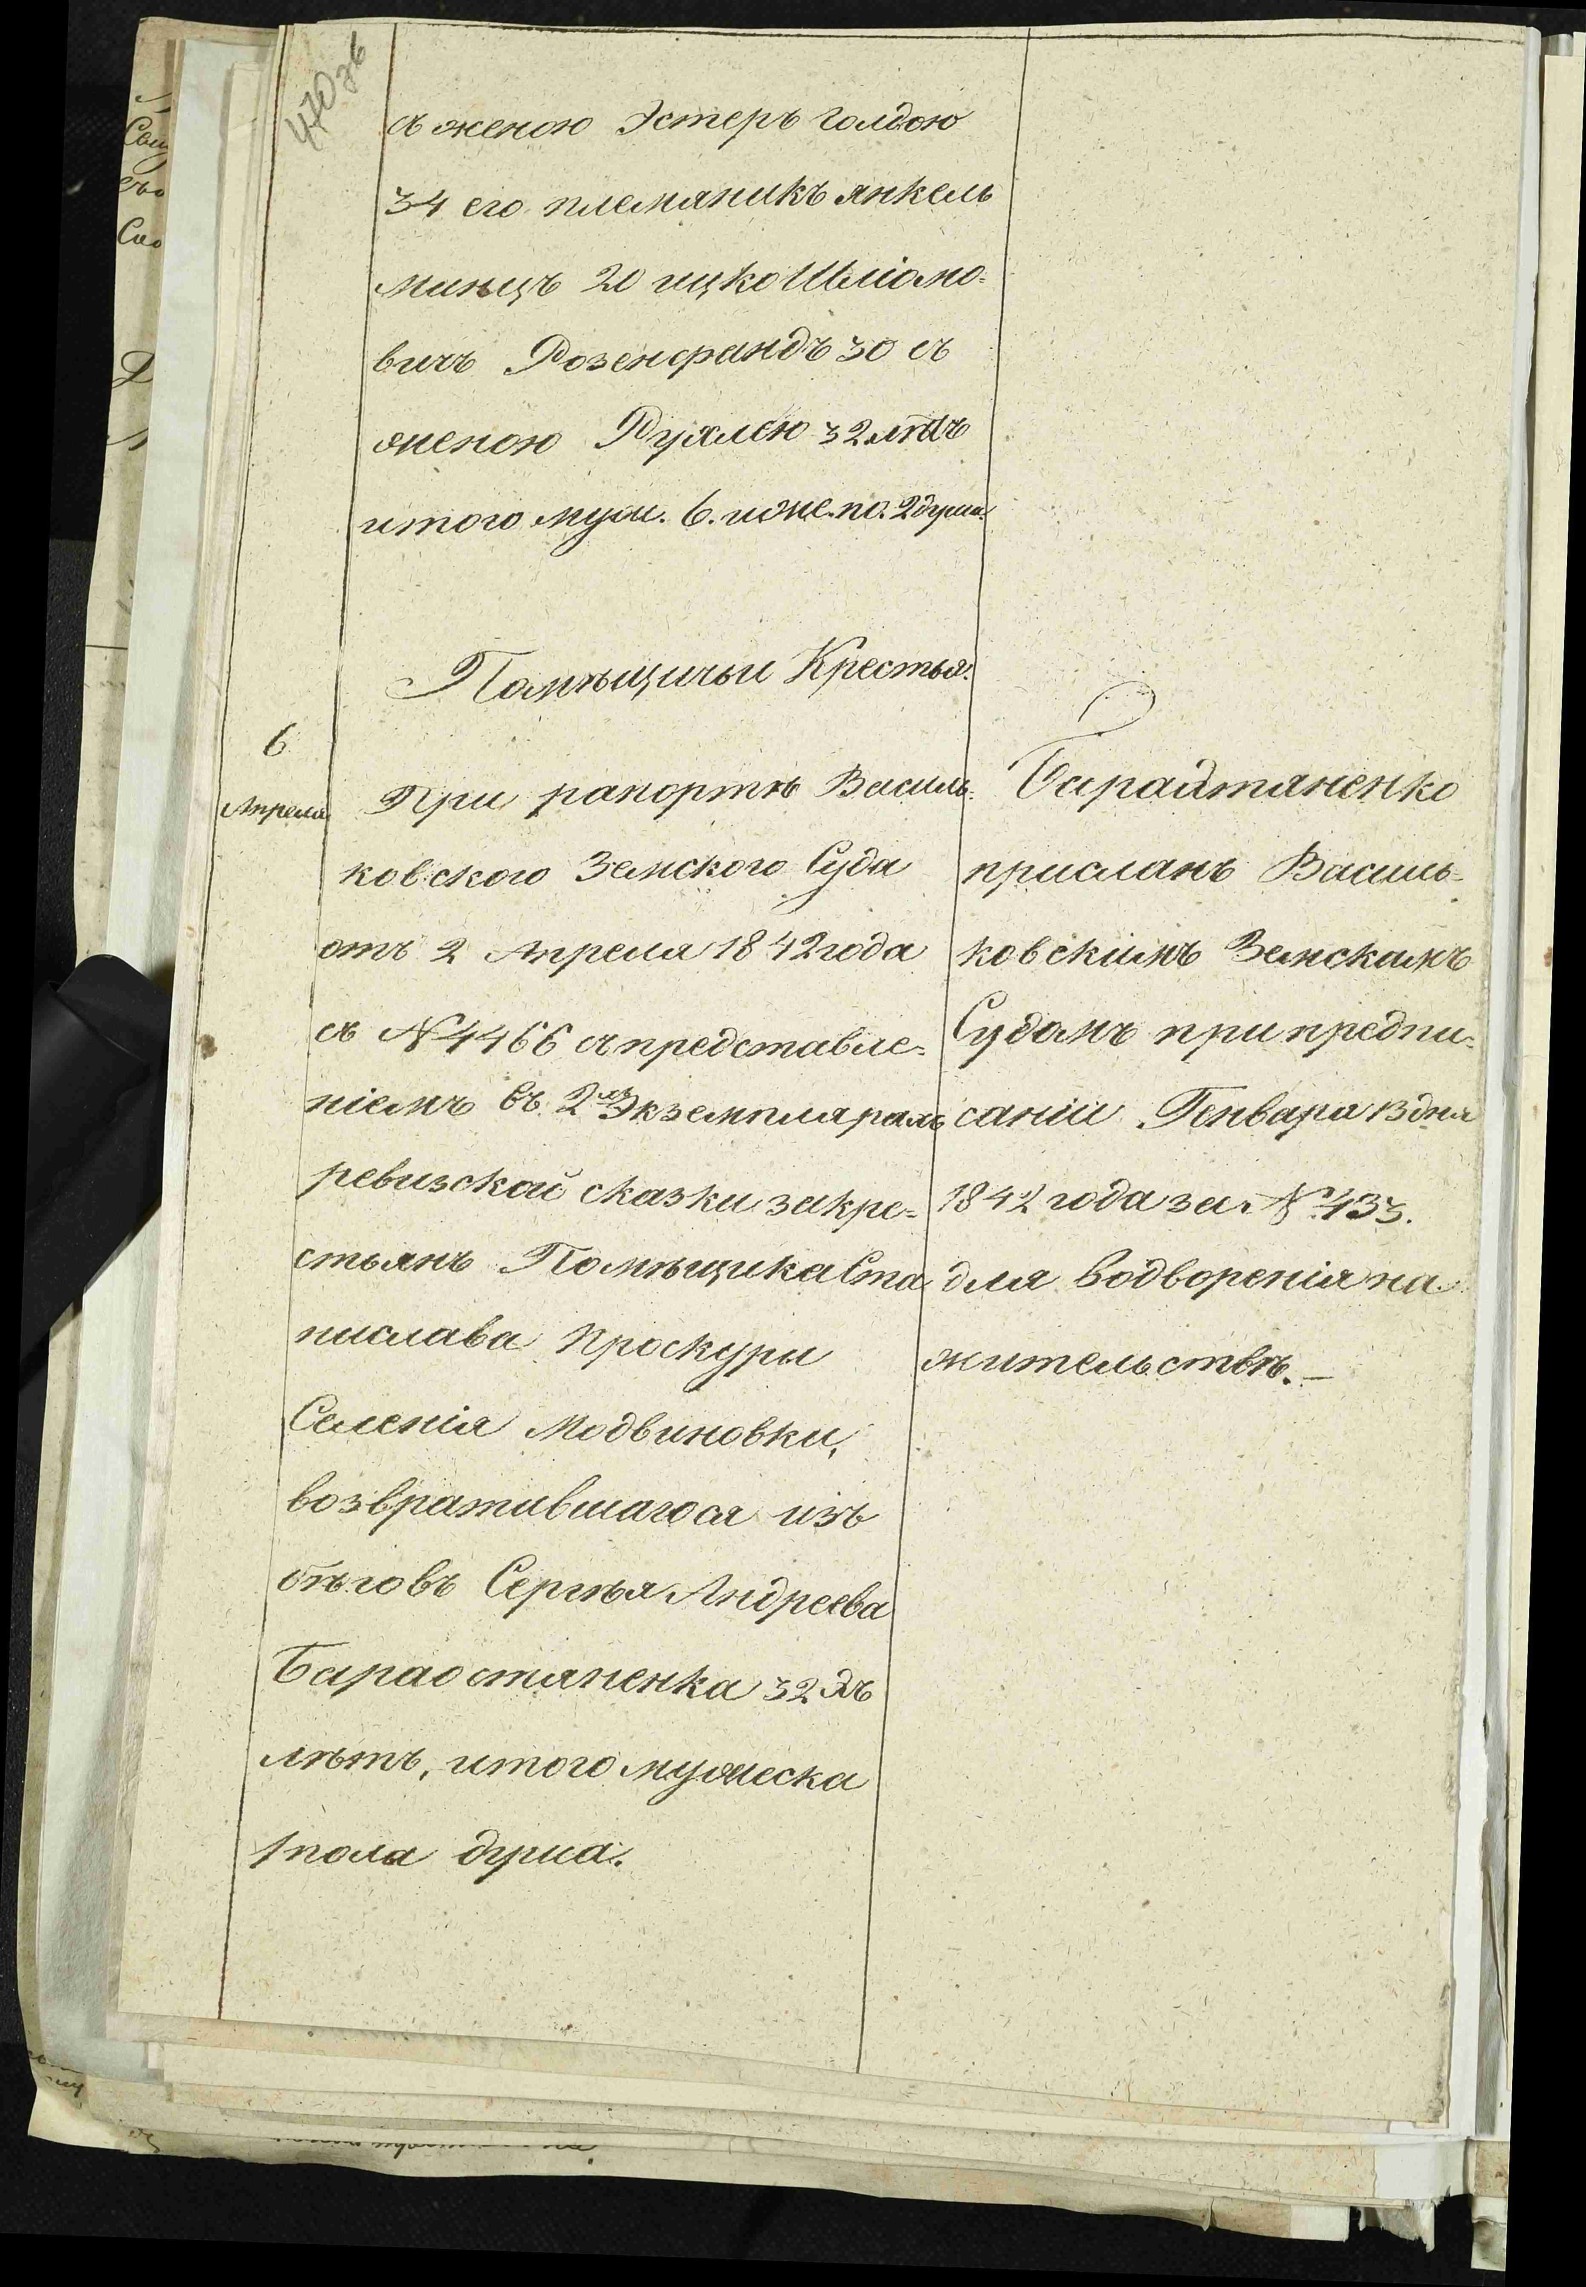 470 зв
съ женою Эстеръ Голдою
34 его племяникъ янкель
минцъ 20 ицко Шліомо-
вичъ Розенфандъ 30 съ
женою Рухлею 32 летъ
итого муж. 6. и же. по. 2 душа.
Помѣщичьи Крестья.
6
Апреля
При рапортѣ Василь-
ковского Земского Суда
отъ 2 Апреля 1842 года
съ № 4466 съ представле-
ніемъ въ 2хъ Экземплярахъ
ревизской сказки за кре-
стьянъ Помѣщика Ста
нислава Проскуры
Селенія Модвиновки,
возвратившагося изъ
бѣговъ Сергѣя Андреева
32хъ
лѣтъ, итого мужеска
1 пола душа.
присланъ Василь-
ковскимъ Земскимъ
Судомъ при предпи-
саніи Генваря 13 дня
1842 года за № 433.
для водворенія на
жительствѣ.—